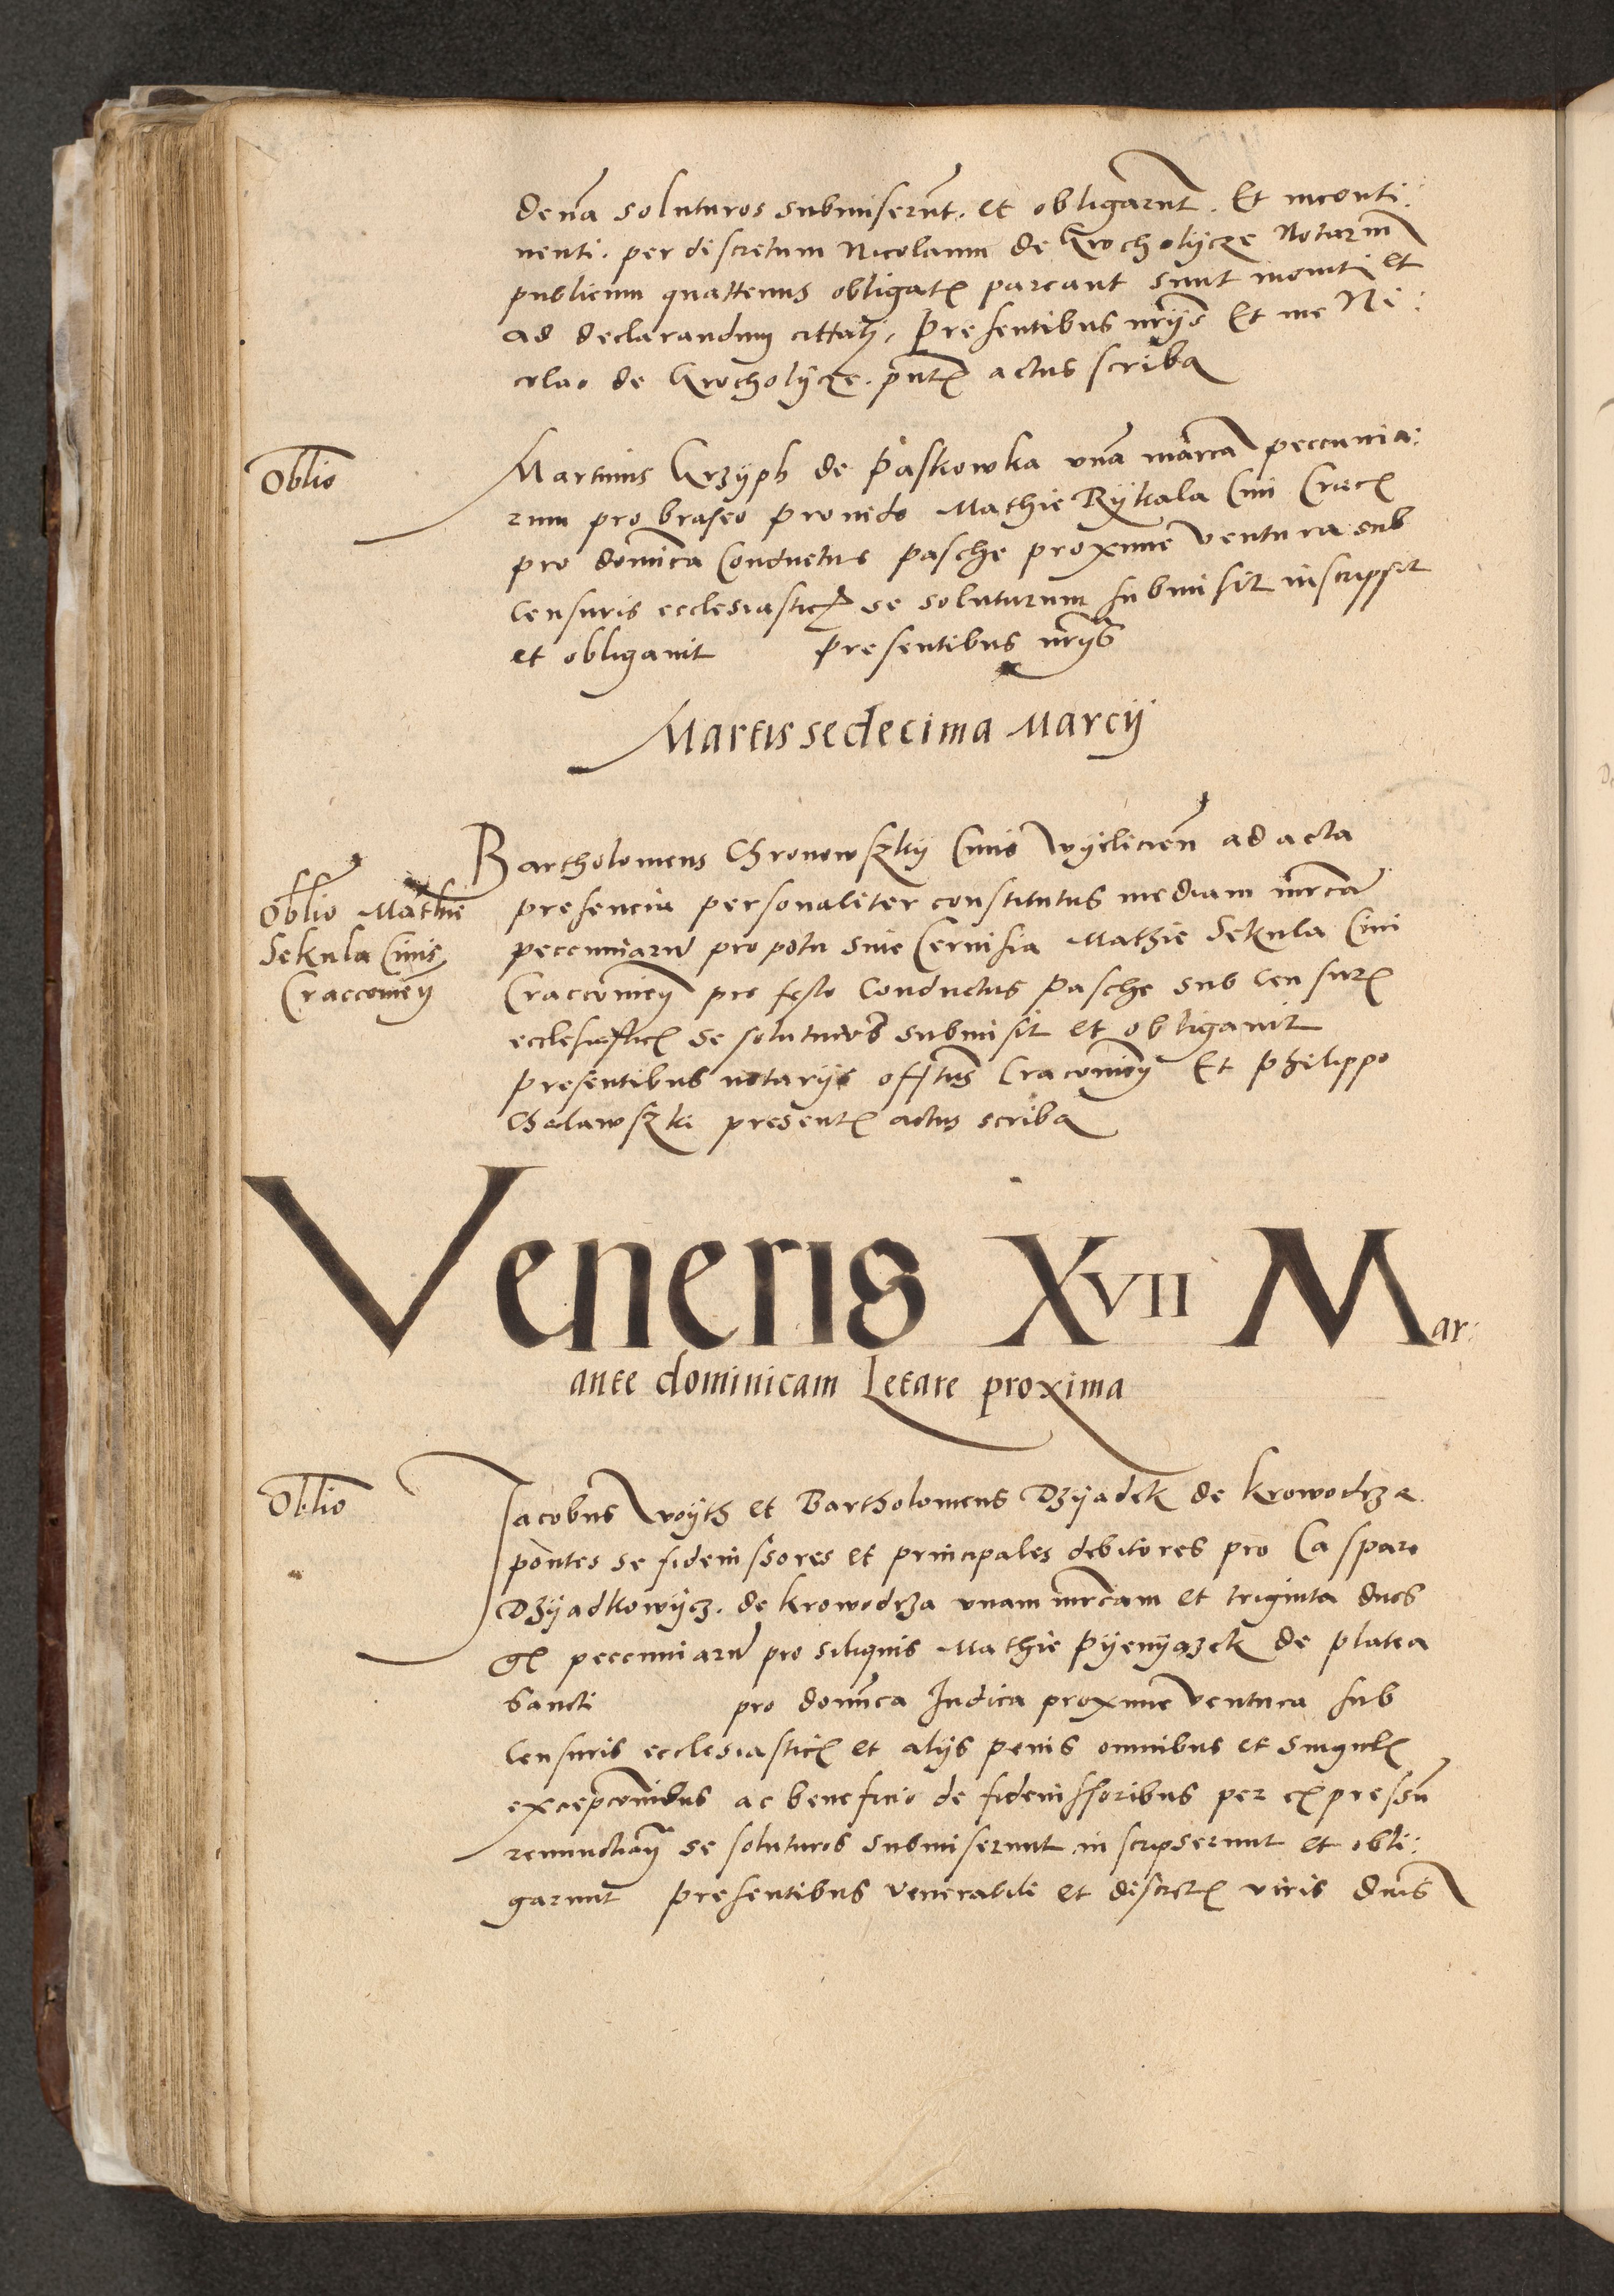 dena soluturos submiserūt. et obligarūt. Et inconti:
nenti. per discretum Nicolaum de Krocholycze Notariū
publicum quattenus obligatꝭ pareant sunt moniti et
ad declarandum cittati. Presentibus nrijs Et me Ni:
colao de Krocholycze. pntꝭ actus scriba
Oblio
Martinus Krzyph de Paskowka vnā marcā peccunia:
rum pro braseo provido Mathie Rykala Civi Cracꝭ
pro domīca Conductus pasche proxime ventura sub
censuris ecclesiasticꝭ se soluturum submisit inscripsit
et obligavit presentibus nrijs
Martis sedecima Marcij
Oblio Mathie
Sekula Civis
Craccovieñ
Bartholomeus Chronowszky Civis Vyelicieñ ad acta
presencia personaliter constitutus mediam mrcā
peccuniarū pro potu sive Cervisia Mathie Sekula Civi
Craccovieñ pro festo Conductus Pasche sub censurꝭ
ecclesiasticꝭ se soluturū submisit et obligavit
presentibus notarijs Cracovieñ Et Philippo
Chelawszki presentꝭ actus scriba
Veneris XVII Mar:
ante dominicam Letare proxima
Oblio
Jacobus Woyth et Bartholomeus Dzyadek de Krowodrza
pōntes se fideiussores et principales debitores pro Caspare
Dzyadkowycz. de Krowodrza vnam mrcam et triginta duos
gꝭ peccuniarū pro siliquis Mathie Pyenyązek de platea
Sancti pro domīca Judica proxime ventura sub
Censuris ecclesiasticꝭ et alijs penis omnibus et singulꝭ
excepcōnibus ac beneficio de fideiussoribus per expressū
renunctiañ se soluturos submiserunt inscripserunt et obli:
garunt presentibus venerabili et discretꝭ viris dnis